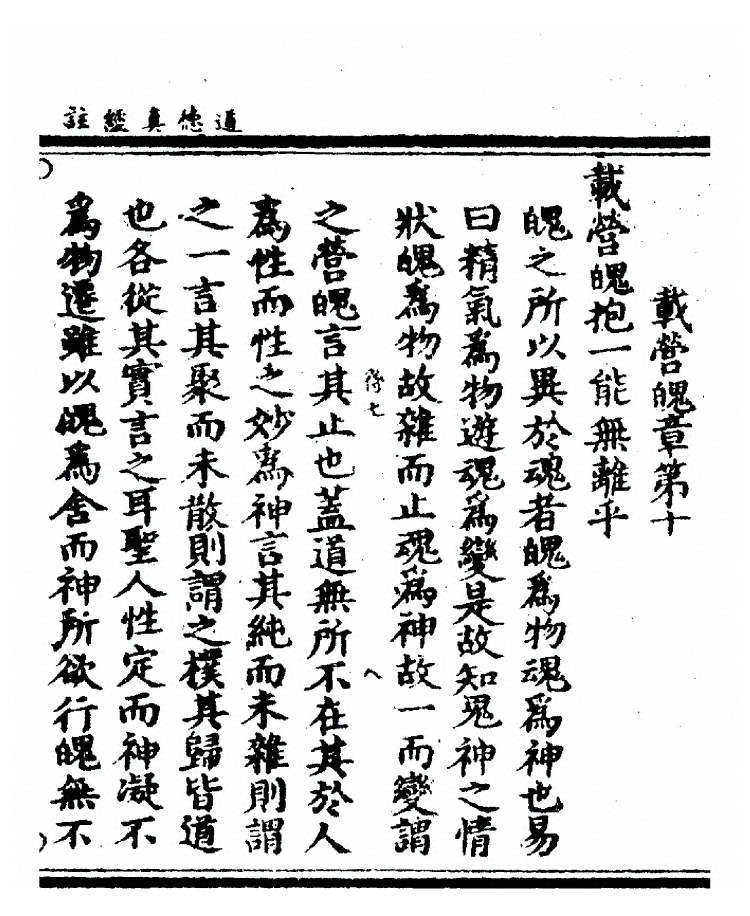 道德真經註
載營魄章第十
載營魄抱一能無離乎
魄之所以異於魂者魄為物魂為神也易
曰精氣為物遊魂為變是故知鬼神之情
狀魄為物故雜而止魂為神故一而變謂
得七
之營魄言其止也蓋道無所不在其於人
為性而性之妙為神言其純而未雜則謂
之一言其聚而未散則謂之樸其歸皆道
也各從其實言之耳聖人性定而神凝不
為物遷雖以魄為舍而神所欲行魄無不